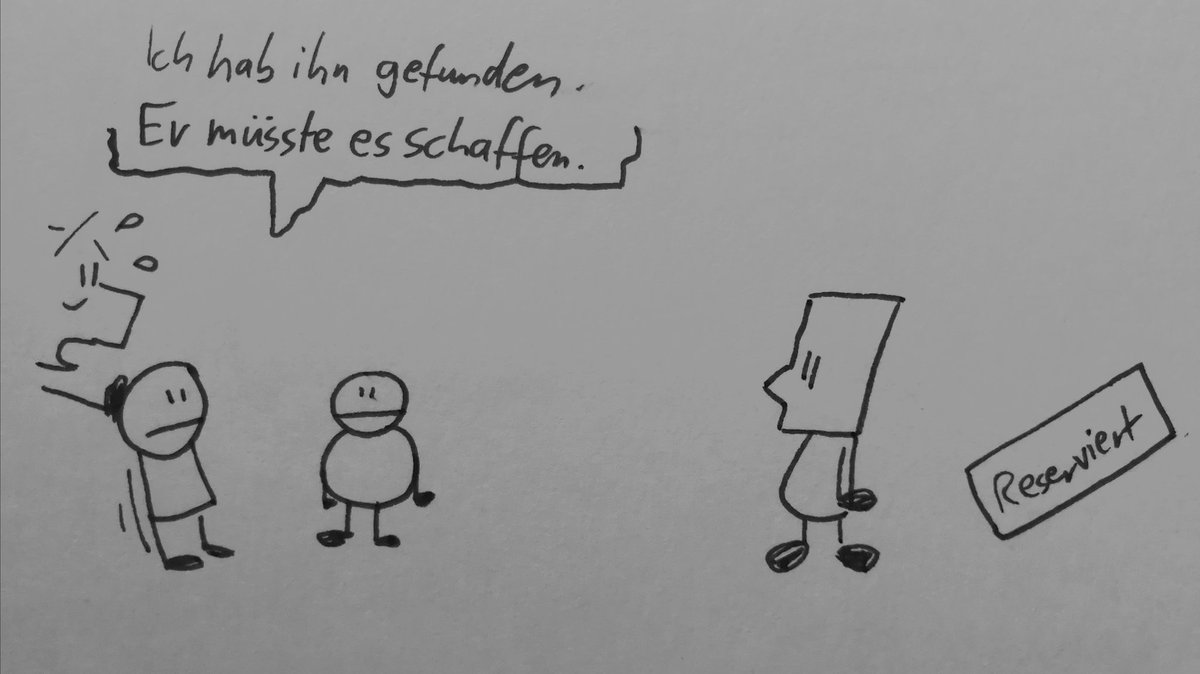 Ich hab ihn gefunden.
Er müsste es schaffen.
Reserviert